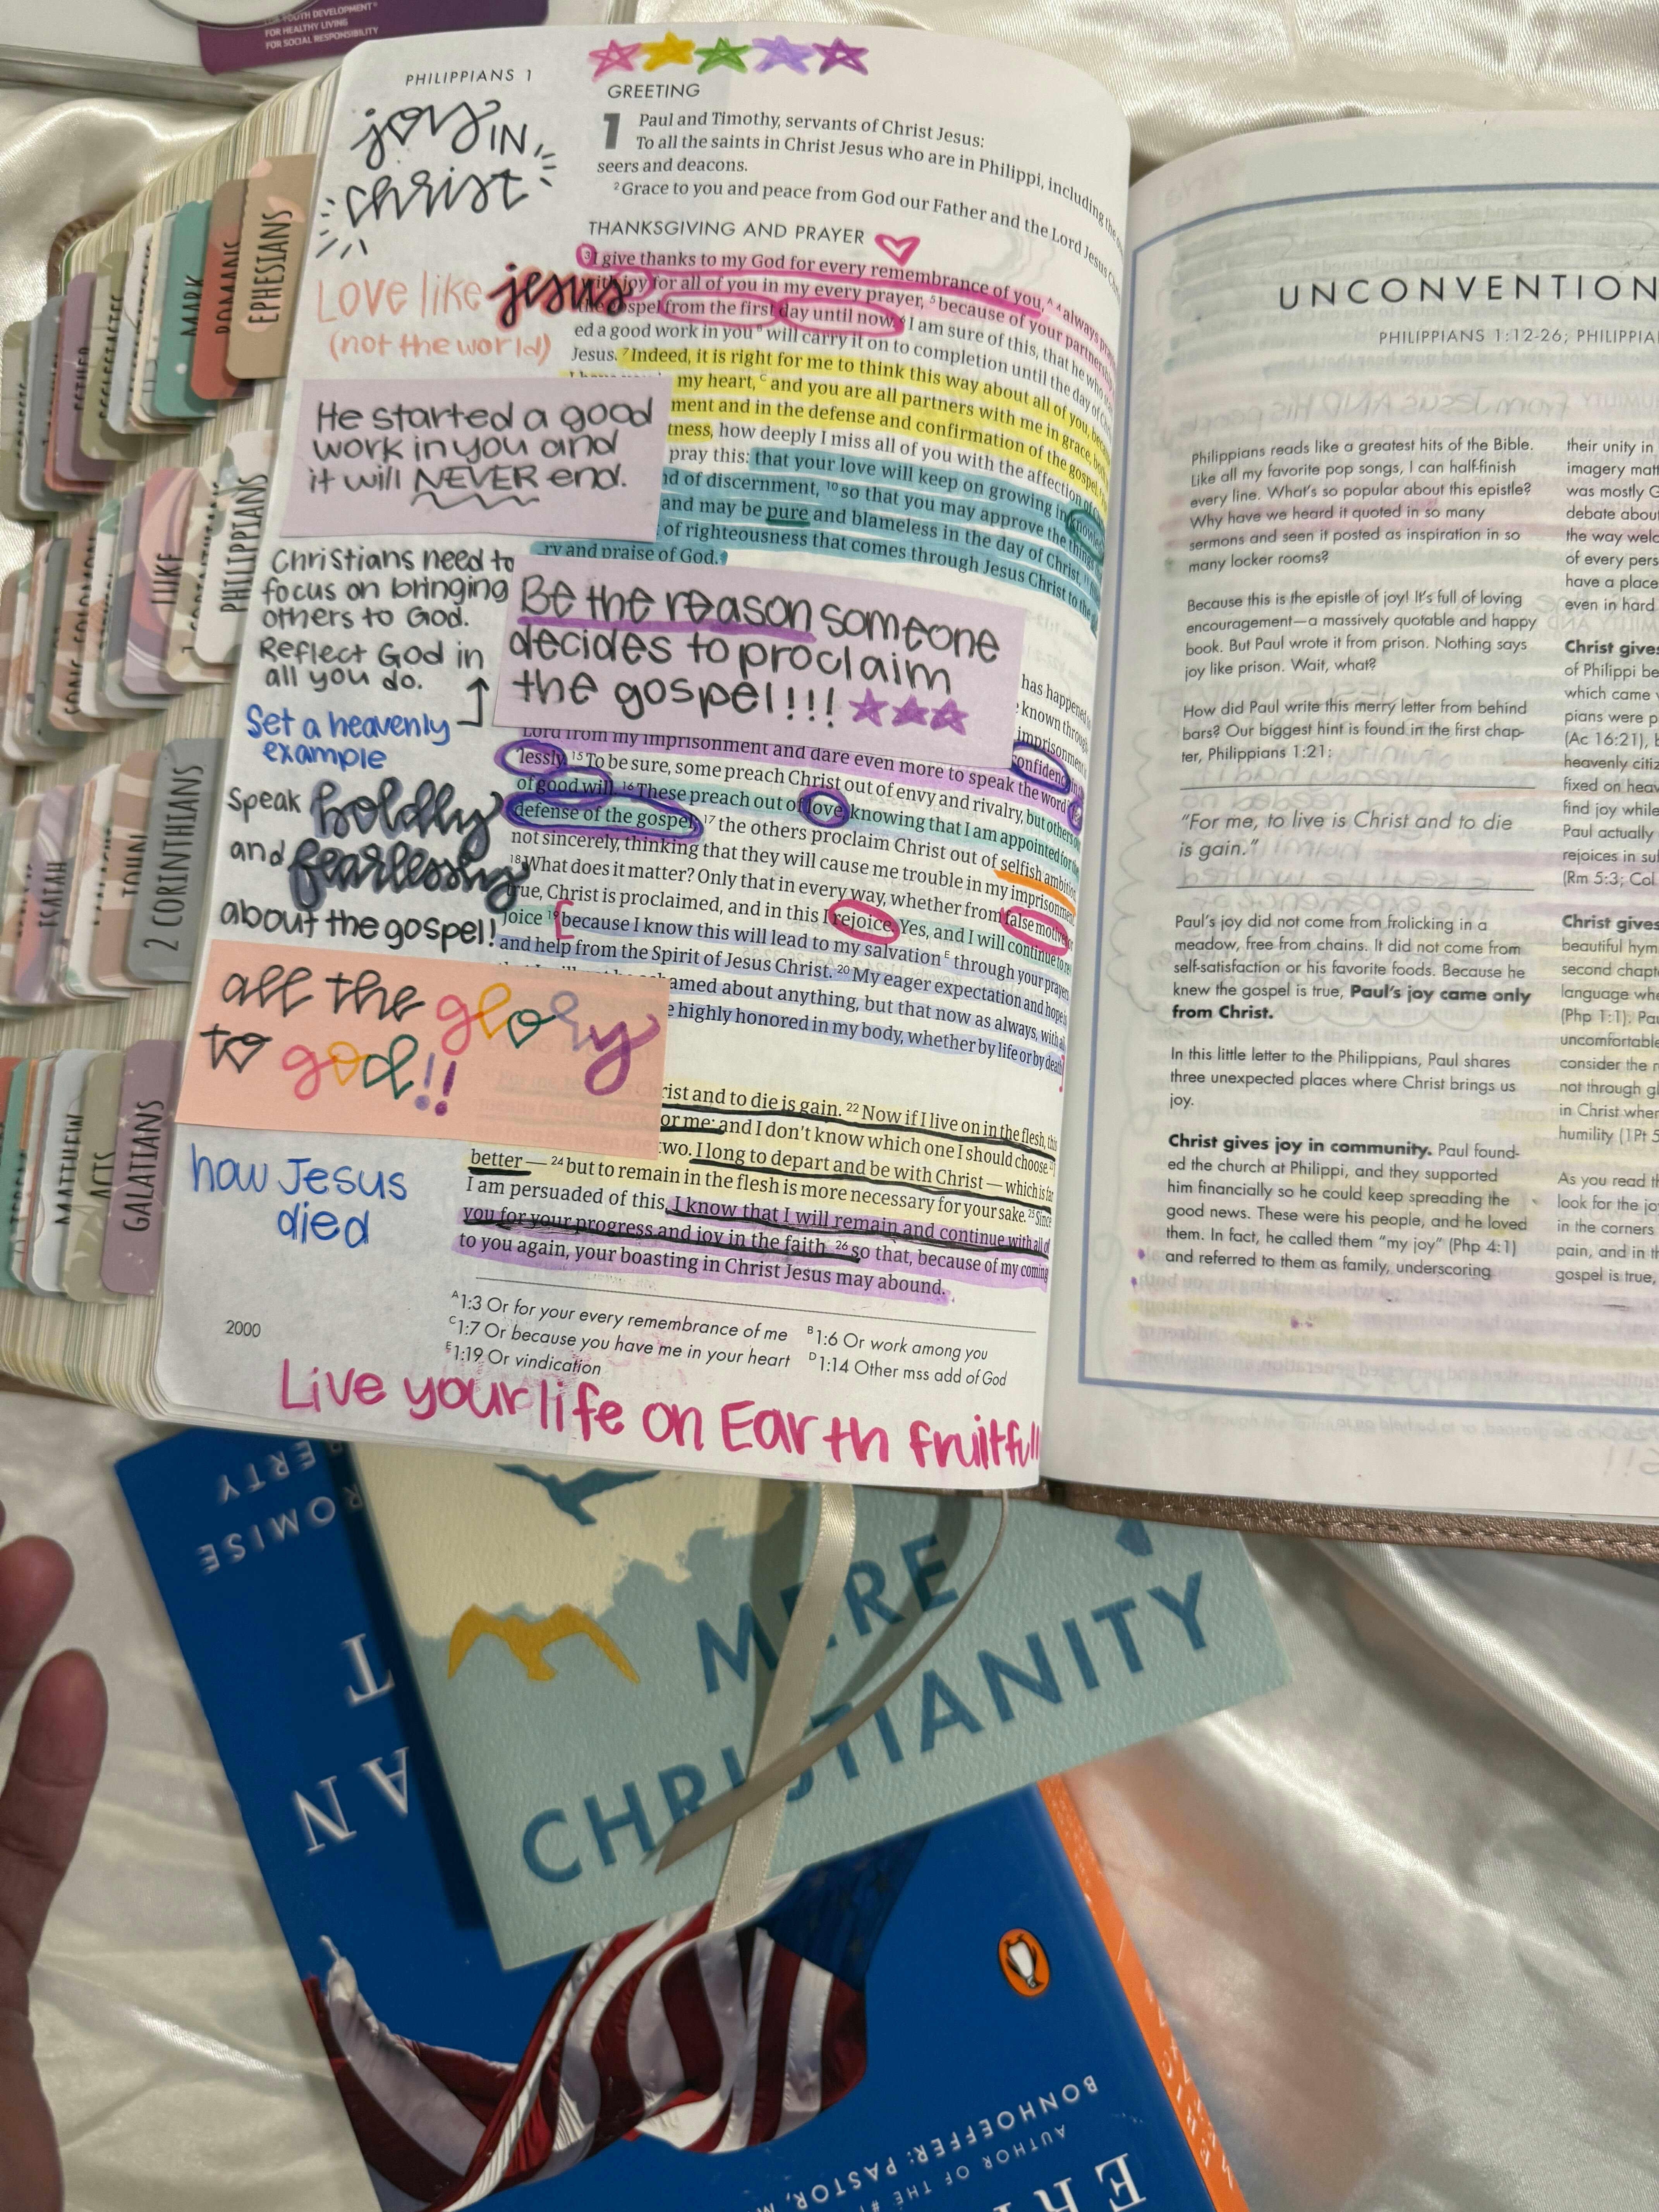 YOUTH DEVELOPMENT®
FOR HEALTHY LIVING
FOR SOCIAL RESPONSIBILITY
PHILIPPIANS 1
joy IN
christ
Love like jesus
(not the world)
He started a good
work in you and
it will NEVER end.
Christians need to
focus on bringing
others to God.
Reflect God in
all you do.
Set a heavenly
example
speak boldly
and fearlessly
about the gospel!
all the glory
to god!!
how Jesus
died
2000
GREETING
1 Paul and Timothy, servants of Christ Jesus:
To all the saints in Christ Jesus who are in Philippi, including the
seers and deacons.
2 Grace to you and peace from God our Father and the Lord Jesus Christ
THANKSGIVING AND PRAYER
3 I give thanks to my God for every remembrance of you, A 4 always
with joy for all of you in my every prayer, 5 because of your partnership
the gospel from the first day until now. 6 I am sure of this, that he who
ed a good work in you B will carry it on to completion until the day of Christ
Jesus. 7 Indeed, it is right for me to think this way about all of you,
my heart, C and you are all partners with me in grace,
ment and in the defense and confirmation of the gospel.
tness, how deeply I miss all of you with the affection of
pray this: that your love will keep on growing in
nd of discernment, 10 so that you may approve the things
and may be pure and blameless in the day of Christ, 11
of righteousness that comes through Jesus Christ to the
ry and praise of God.
Be the reason someone
decides to proclaim
the gospel!!!
has happened
known through
imprisonment
Lord from my imprisonment and dare even more to speak the word
lessly. 15 To be sure, some preach Christ out of envy and rivalry, but others
of good will. 16 These preach out of love, knowing that I am appointed for the
defense of the gospel; 17 the others proclaim Christ out of selfish ambition,
not sincerely, thinking that they will cause me trouble in my imprisonment.
18 What does it matter? Only that in every way, whether from false motives
true, Christ is proclaimed, and in this I rejoice. Yes, and I will continue to re-
joice 19 because I know this will lead to my salvation E through your prayers
and help from the Spirit of Jesus Christ. 20 My eager expectation and hope is
amed about anything, but that now as always, with all
e highly honored in my body, whether by life or by death.
rist and to die is gain. 22 Now if I live on in the flesh, this
or me; and I don't know which one I should choose.
two. I long to depart and be with Christ — which is far
better — 24 but to remain in the flesh is more necessary for your sake. 25 Since
I am persuaded of this, I know that I will remain and continue with all of
you for your progress and joy in the faith, 26 so that, because of my coming
to you again, your boasting in Christ Jesus may abound.
A 1:3 Or for your every remembrance of me B 1:6 Or work among you
C 1:7 Or because you have me in your heart D 1:14 Other mss add of God
E 1:19 Or vindication
Live your life on Earth fruitful
UNCONVENTION
PHILIPPIANS 1:12-26; PHILIPPIA
Philippians reads like a greatest hits of the Bible.
Like all my favorite pop songs, I can half-finish
every line. What's so popular about this epistle?
Why have we heard it quoted in so many
sermons and seen it posted as inspiration in so
many locker rooms?
Because this is the epistle of joy! It's full of loving
encouragement—a massively quotable and happy
book. But Paul wrote it from prison. Nothing says
joy like prison. Wait, what?
How did Paul write this merry letter from behind
bars? Our biggest hint is found in the first chap-
ter, Philippians 1:21:
"For me, to live is Christ and to die
is gain."
Paul's joy did not come from frolicking in a
meadow, free from chains. It did not come from
self-satisfaction or his favorite foods. Because he
knew the gospel is true, Paul's joy came only
from Christ.
In this little letter to the Philippians, Paul shares
three unexpected places where Christ brings us
joy.
Christ gives joy in community. Paul found-
ed the church at Philippi, and they supported
him financially so he could keep spreading the
good news. These were his people, and he loved
them. In fact, he called them "my joy" (Php 4:1)
and referred to them as family, underscoring
their unity in
imagery matt
was mostly G
debate about
the way welc
of every pers
have a place
even in hard
Christ gives
of Philippi be
which came
pians were p
(Ac 16:21), b
heavenly citiz
fixed on heav
find joy while
Paul actually
rejoices in suf
(Rm 5:3; Col
Christ gives
beautiful hym
second chapt
language whe
(Php 1:1). Pau
uncomfortable
consider the r
not through gl
in Christ wher
humility (1Pt 5
As you read th
look for the jo
in the corners
pain, and in th
gospel is true,
MARK
ROMANS
EPHESIANS
ESTHER
ECCLESIASTES
LUKE
PHILIPPIANS
SONG OF SOLOMON
ISAIAH
JOHN
2 CORINTHIANS
MATTHEW
ACTS
GALATIANS
MERE
CHRISTIANITY
ERTY
OMISE
T
AN
BONHOEFFER: PASTOR, M
AUTHOR OF THE #1
ER